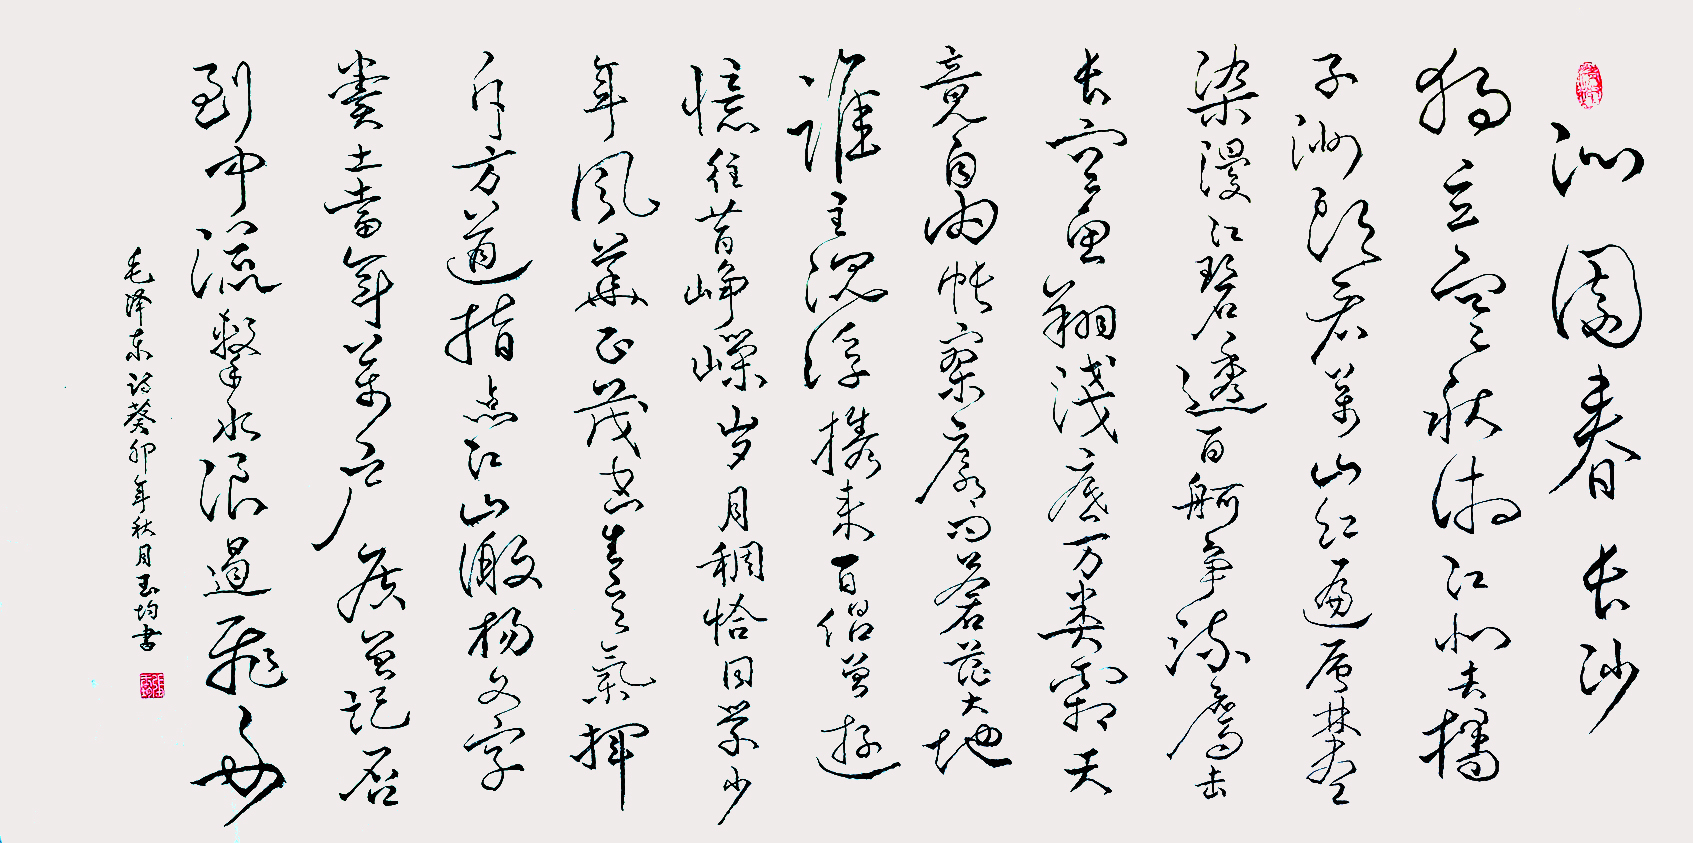 沁園春长沙
独立寒秋湘江北去橘
子洲头看萬山红遍层林尽
染漫江碧透百舸争流鹰击
长空鱼翔浅底万类霜天
竞自由怅寥廓问苍茫大地
谁主沉浮携来百侣曾遊
憶往昔峥嵘岁月稠恰同学少
年风華正茂书生意氣挥
斥方遒指点江山激扬文字
粪土當年萬户侯曾记否
到中流擊水浪遏飞舟
毛泽东诗癸卯年秋月玉均书